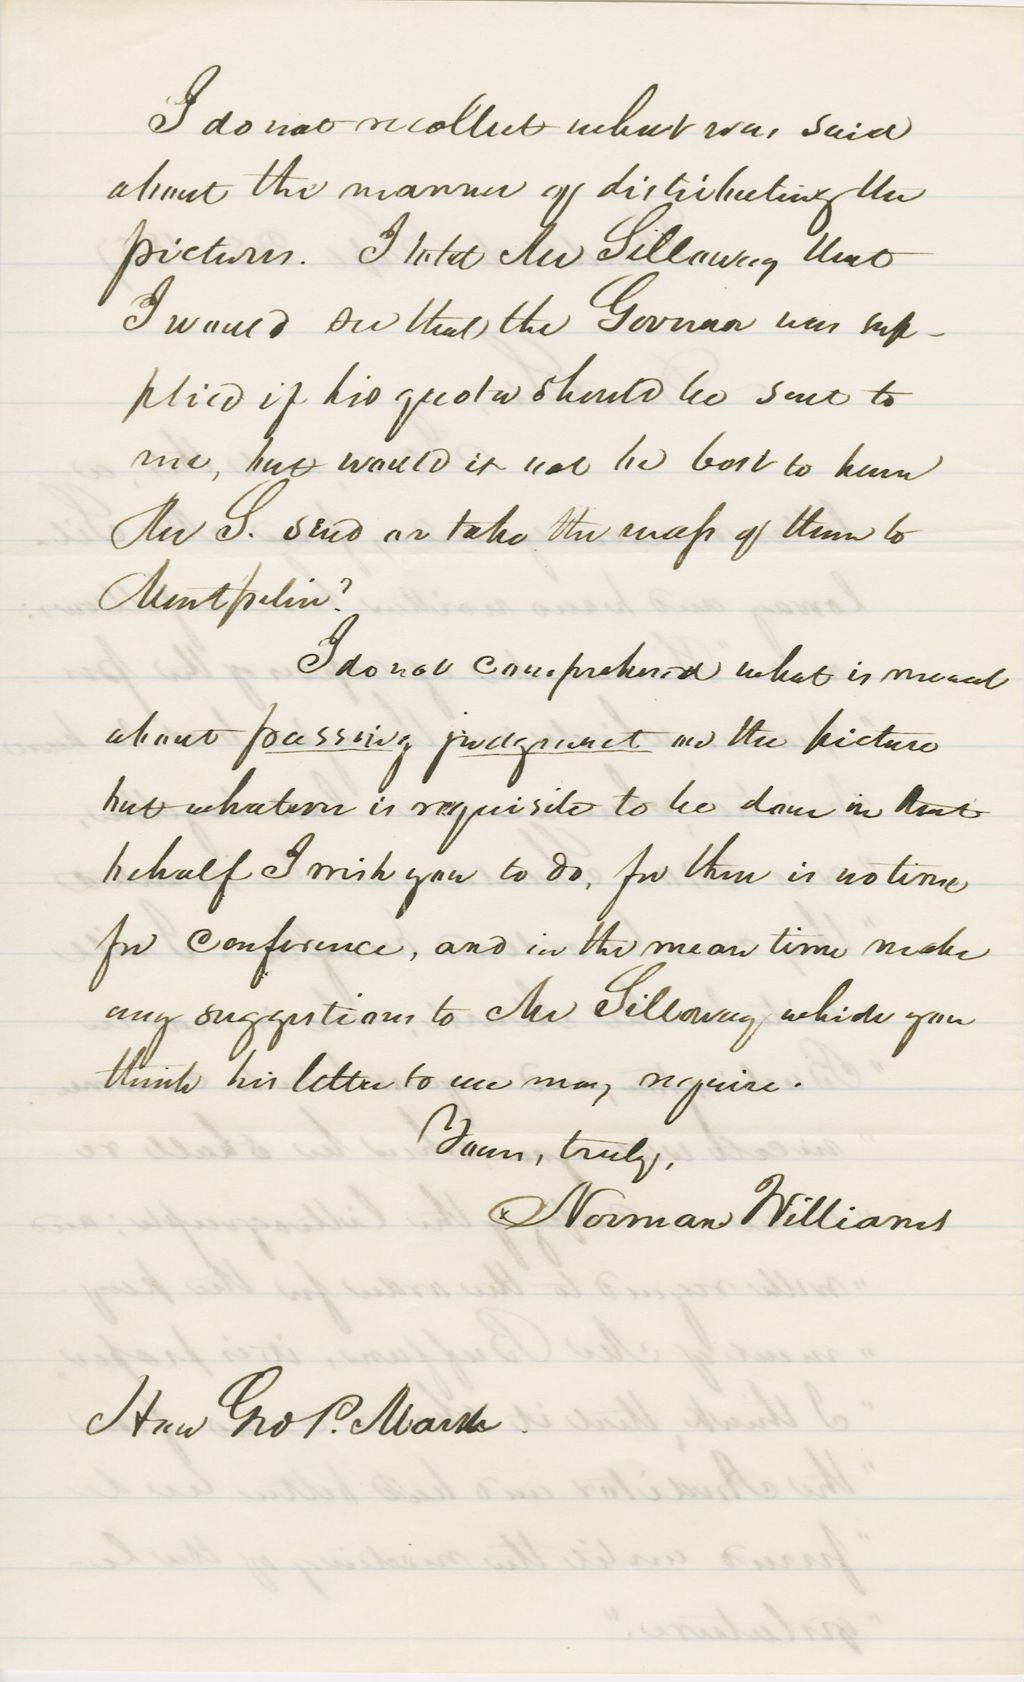 I do not recollect what was said
about the manner of distributing the
pictures. I told Mr Silloway that
I would see that the Govenor was sup-
plied if his quota should be sent to
me, but would it not be best to have
Mr S. send or take the mass of them to
Montpelier?
I do not comprehend what is meant
about passing judgment on the picture
but whatever is requisite to be done in that
behalf I wish you to do, for there is no time
for conference, and in the mean time make
any suggestions to Mr Silloway which you
think his letter to me may require.
Yours, truly,
Norman Williams
Hon Geo P. Marsh.